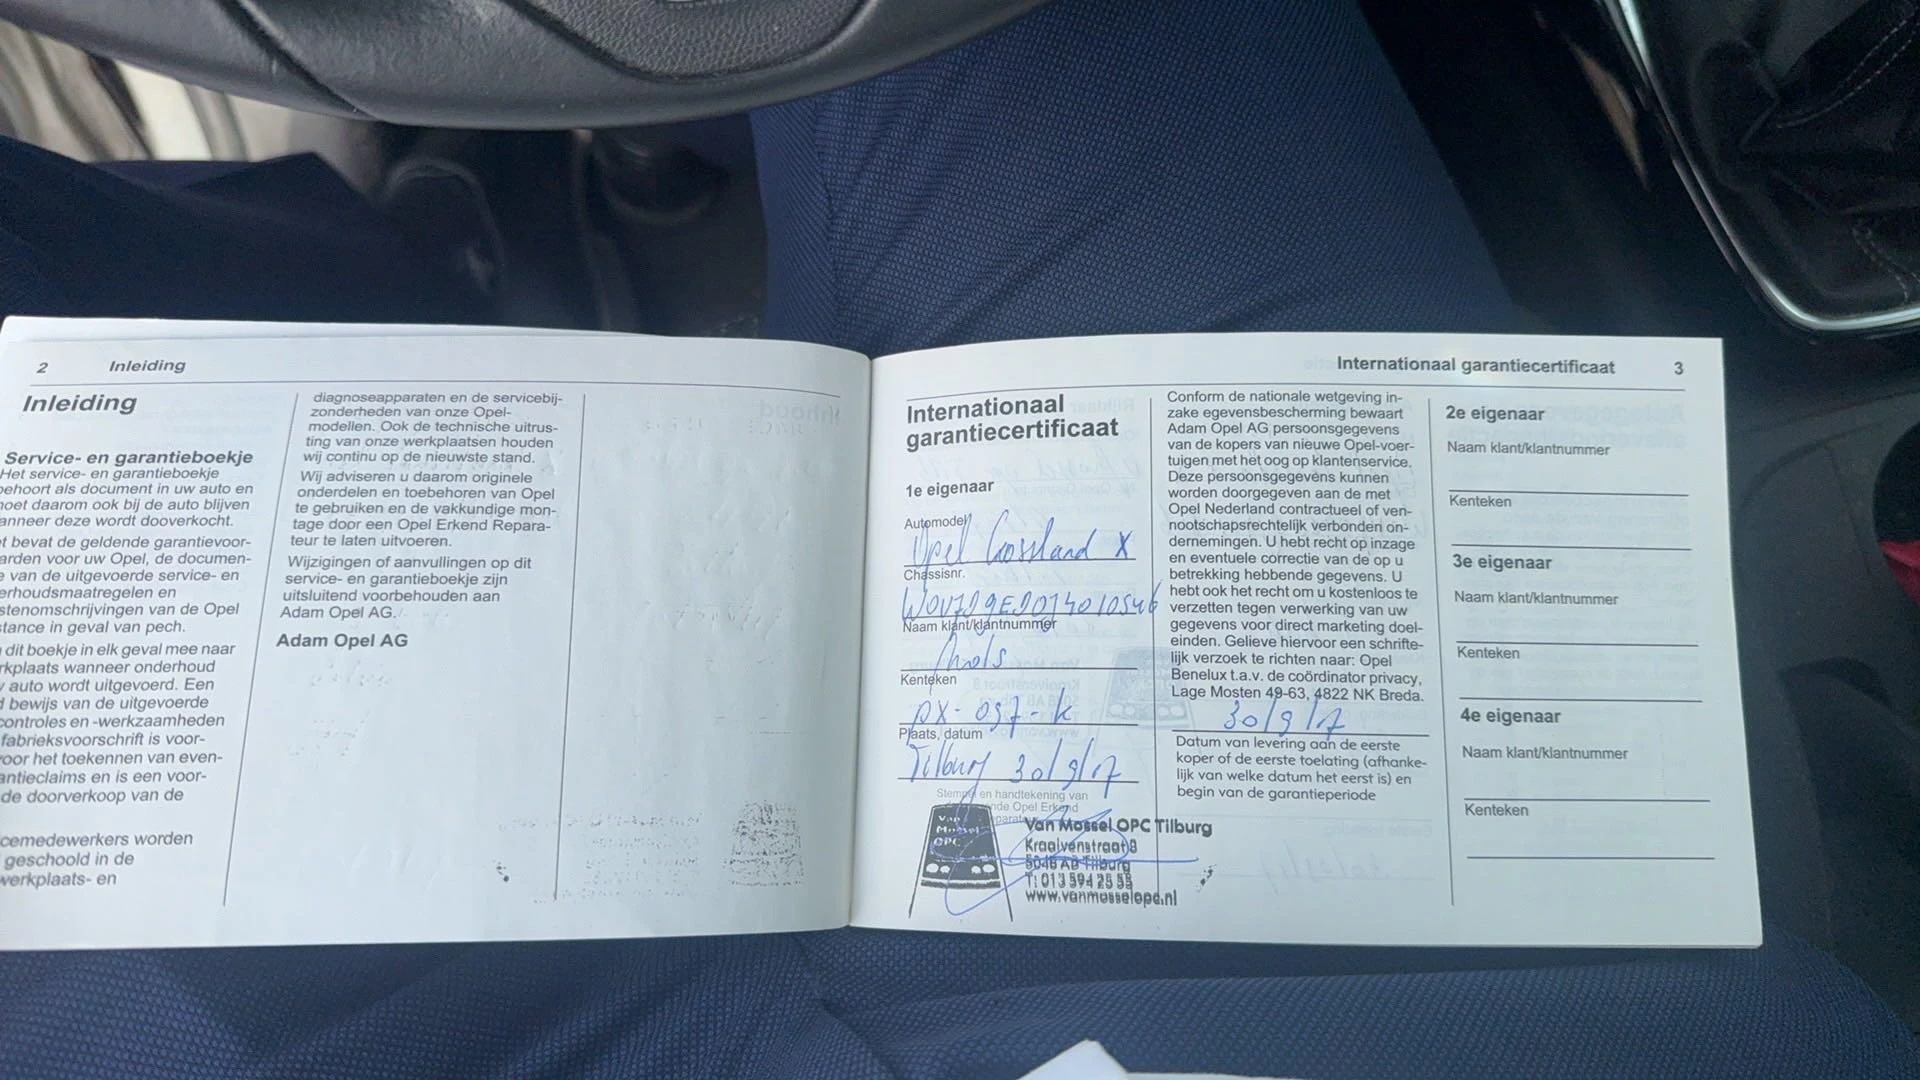 2 Inleiding
Inleiding
Service- en garantieboekje
Het service- en garantieboekje
behoort als document in uw auto en
moet daarom ook bij de auto blijven
wanneer deze wordt dooverkocht.
t bevat de geldende garantievoor-
arden voor uw Opel, de documen-
e van de uitgevoerde service- en
erhoudsmaatregelen en
stenomschrijvingen van de Opel
stance in geval van pech.
dit boekje in elk geval mee naar
rkplaats wanneer onderhoud
auto wordt uitgevoerd. Een
bewijs van de uitgevoerde
controles en -werkzaamheden
fabrieksvoorschrift is voor-
voor het toekennen van even-
antieclaims en is een voor-
de doorverkoop van de
cemedewerkers worden
geschoold in de
werkplaats- en
diagnoseapparaten en de servicebij-
zonderheden van onze Opel-
modellen. Ook de technische uitrus-
ting van onze werkplaatsen houden
wij continu op de nieuwste stand.
Wij adviseren u daarom originele
onderdelen en toebehoren van Opel
te gebruiken en de vakkundige mon-
tage door een Opel Erkend Repara-
teur te laten uitvoeren.
Wijzigingen of aanvullingen op dit
service- en garantieboekje zijn
uitsluitend voorbehouden aan
Adam Opel AG.
Adam Opel AG
Internationaal garantiecertificaat 3
Internationaal
garantiecertificaat
1e eigenaar
Automodel
Opel Crossland X
Chassisnr.
Naam klant/klantnummer
Kenteken
PX-097-k
Plaats, datum
Tilburg 30/9/17
Stempel en handtekening van
nde Opel Erkend
Van Mossel OPC
Van Mossel OPC Tilburg
Kraaivenstraat 8
5048 AB Tilburg
T: 013 594 25 55
www.vanmosselopc.nl
Conform de nationale wetgeving in-
zake egevensbescherming bewaart
Adam Opel AG persoonsgegevens
van de kopers van nieuwe Opel-voer-
tuigen met het oog op klantenservice.
Deze persoonsgegevens kunnen
worden doorgegeven aan de met
Opel Nederland contractueel of ven-
nootschapsrechtelijk verbonden on-
dernemingen. U hebt recht op inzage
en eventuele correctie van de op u
betrekking hebbende gegevens. U
hebt ook het recht om u kosteloos te
verzetten tegen verwerking van uw
gegevens voor direct marketing doel-
einden. Gelieve hiervoor een schrifte-
lijk verzoek te richten naar: Opel
Benelux t.a.v. de coördinator privacy,
Lage Mosten 49-63, 4822 NK Breda.
30/9/17
Datum van levering aan de eerste
koper of de eerste toelating (afhanke-
lijk van welke datum het eerst is) en
begin van de garantieperiode
2e eigenaar
Naam klant/klantnummer
Kenteken
3e eigenaar
Naam klant/klantnummer
Kenteken
4e eigenaar
Naam klant/klantnummer
Kenteken